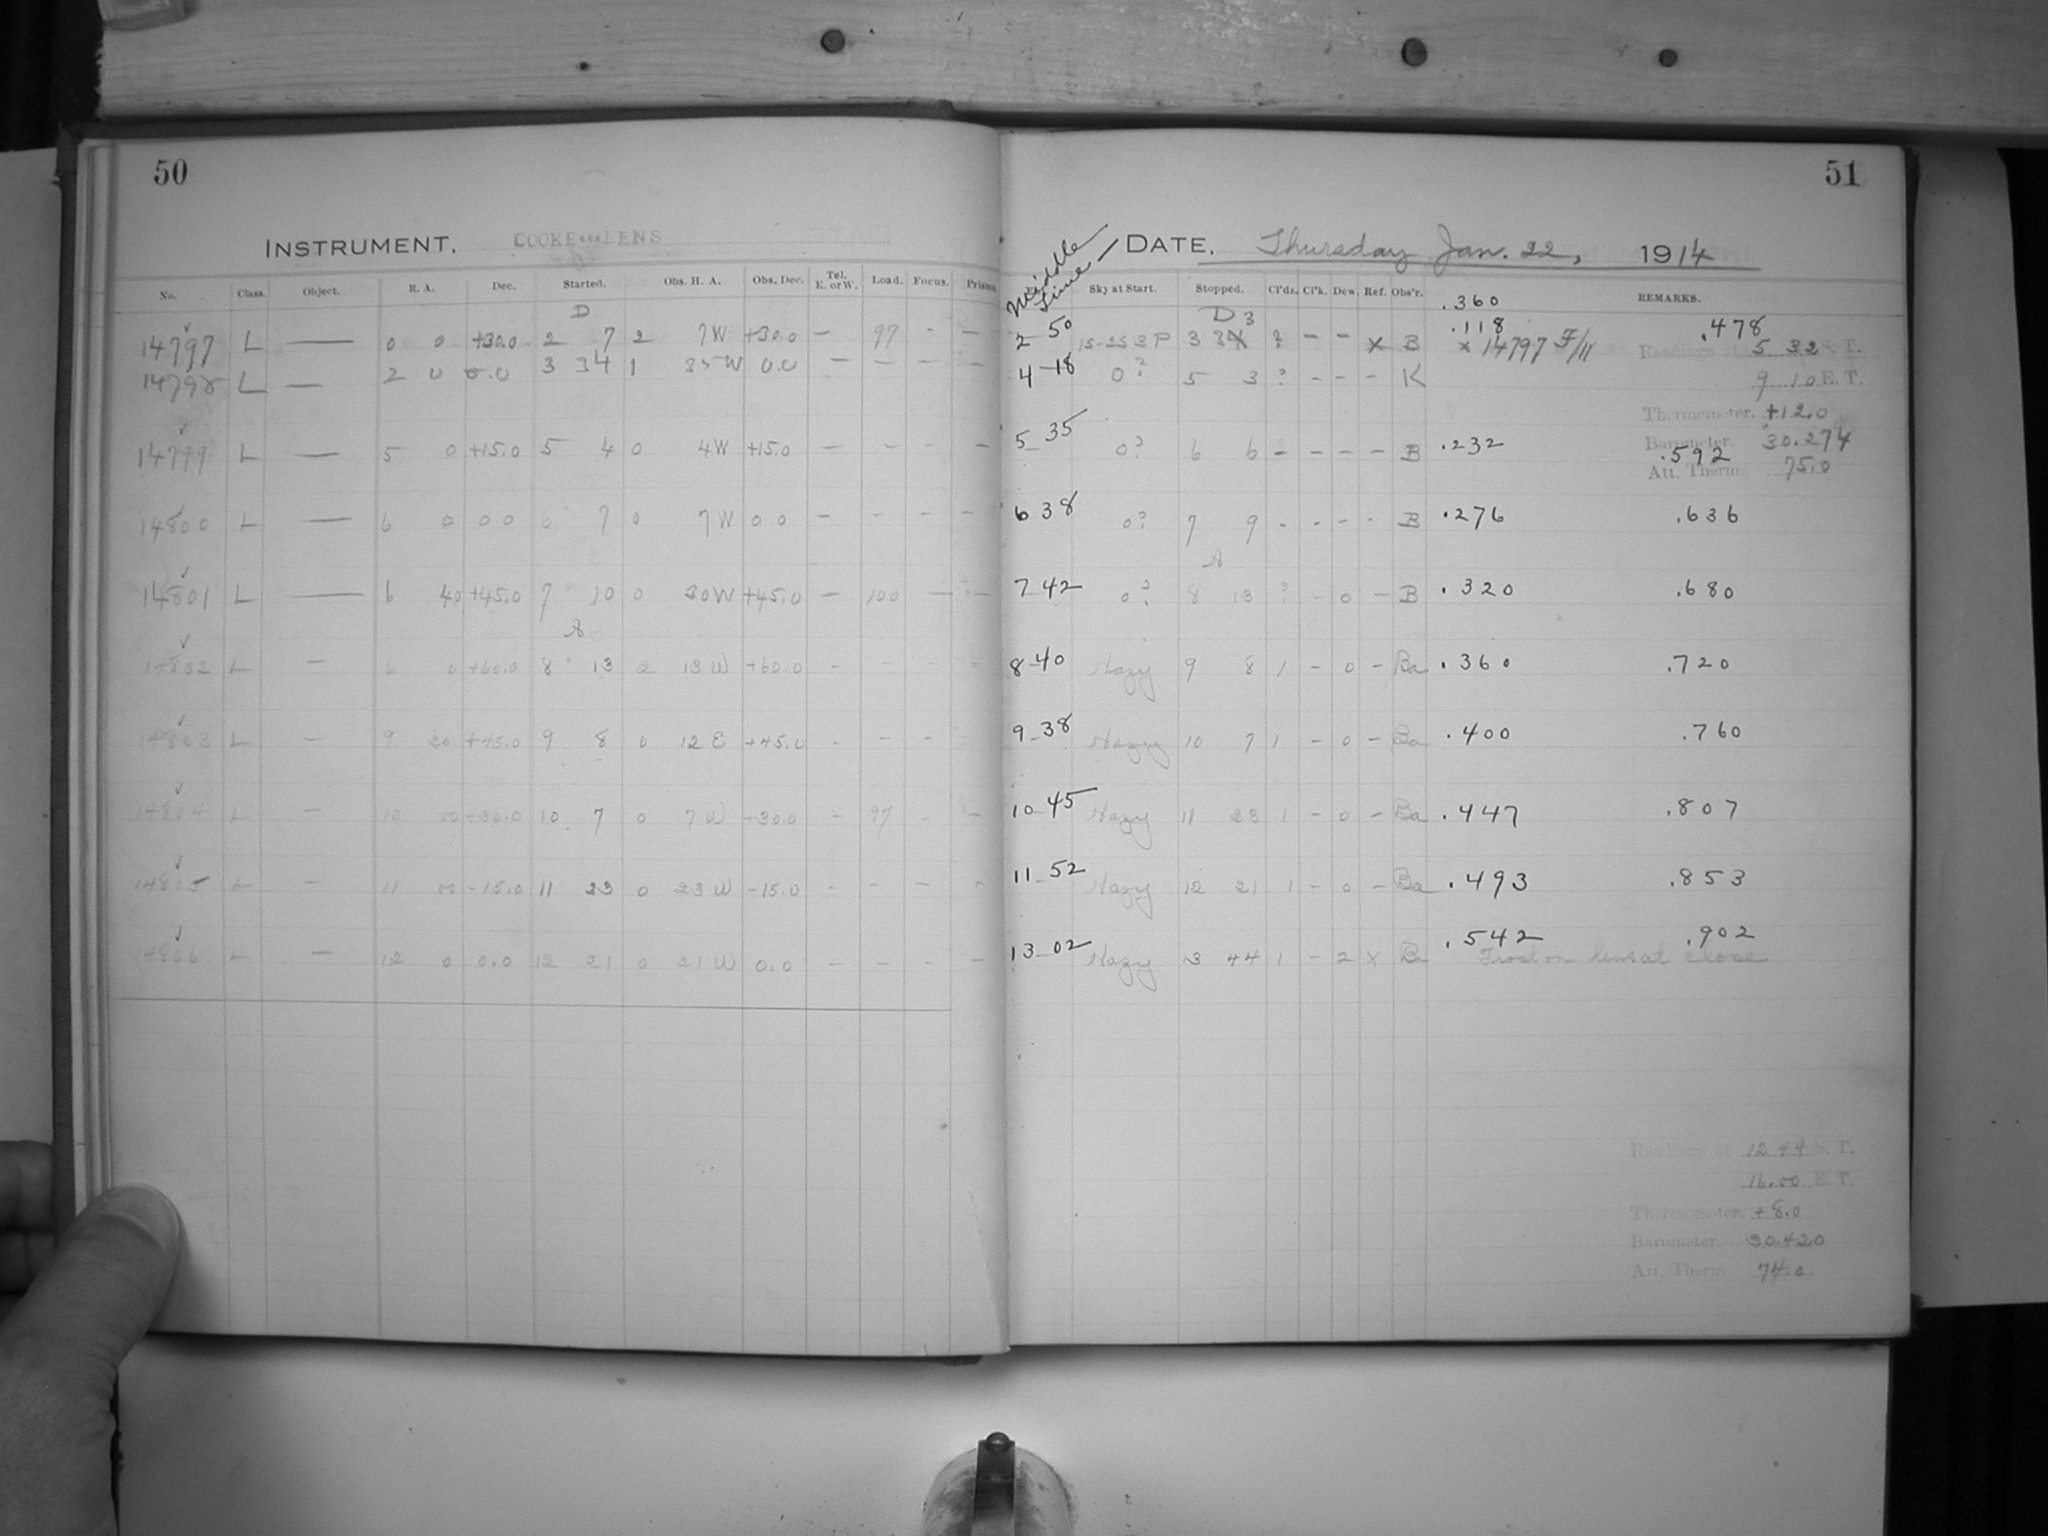 50
INSTRUMENT. COOKE LENS
No. Class. Object. R. A. Dec. Started. Obs. H. A. Obs. Dec. Tel. E. or W. Load. Focus. Prisms
D
14797 L — 0 0 +30.0 2 7 2 7W +30.0 — 97 - —
14798 L — 2 0 0.0 3 34 1 35W 0.0 — — — —
14799 L — 5 0 +15.0 5 4 0 4W +15.0 — — — —
14800 L — 6 0 0 0 6 7 0 7W 0 0 — — — —
14801 L — 6 40 +45.0 7 10 0 30W +45.0 — 100 — —
A
14802 L — 6 0 +60.0 8 13 2 13W +60.0 - - - -
14803 L — 9 20 +45.0 9 8 0 12E +45.0 - - - -
14804 L — 10 00 +30.0 10 7 0 7W +30.0 - 97 - -
14805 L — 11 00 -15.0 11 23 0 23W -15.0 - - - -
14806 L — 12 0 0.0 12 21 0 21W 0.0 - - - -
51
Middle Time — DATE. Thursday Jan. 22, 1914
Sky at Start. Stopped. Cl'ds. Cl'k. Dew. Ref. Obs'r. REMARKS.
.360
D 3
2 50 15-25 3 P 3 3 ? — — x B .118 x 14797 F/11 .478
Readings at 5 32 S. T.
4-18 0? 5 3 ? - - - K
9 10 E. T.
Thermometer. +12.0
5 35 0? 6 6 - - - - B .232
Barometer. 30.274
.592
Att. Therm. 75.0
6 38 0? 7 9 - - - - B .276 .636
A
7 42 0? 8 13 ? - 0 - B .320 .680
8-40 Hazy 9 8 1 - 0 - Ba .360 .720
9-38 Hazy 10 7 1 - 0 - Ba .400 .760
10-45 Hazy 11 23 1 - 0 - Ba .447 .807
11-52 Hazy 12 21 1 - 0 - Ba .493 .853
13-02 Hazy 13 44 1 - 2 x Ba .542 .902
Frost on lens at close
Readings at 12 44 S. T.
16.00 E. T.
Thermometer. +8.0
Barometer. 30.420
Att. Therm. 74.0